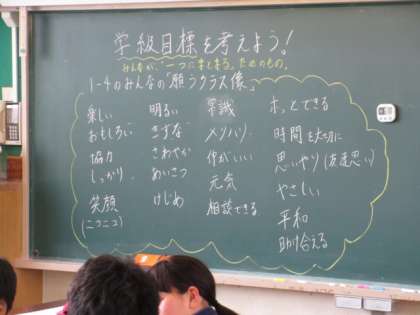 学級目標を考えよう!
みんなが「一つにまとまる」ためのもの。
1-4のみんなの「願うクラス像」
楽しい
おもしろい
協力
しっかり
笑顔
(ニコニコ)
明るい
きずな
さわやか
あいさつ
けじめ
常識
メリハリ
仲がいい
元気
相談できる
ホッとできる
時間を大切に
思いやり(友達思い)
やさしい
平和
助け合える